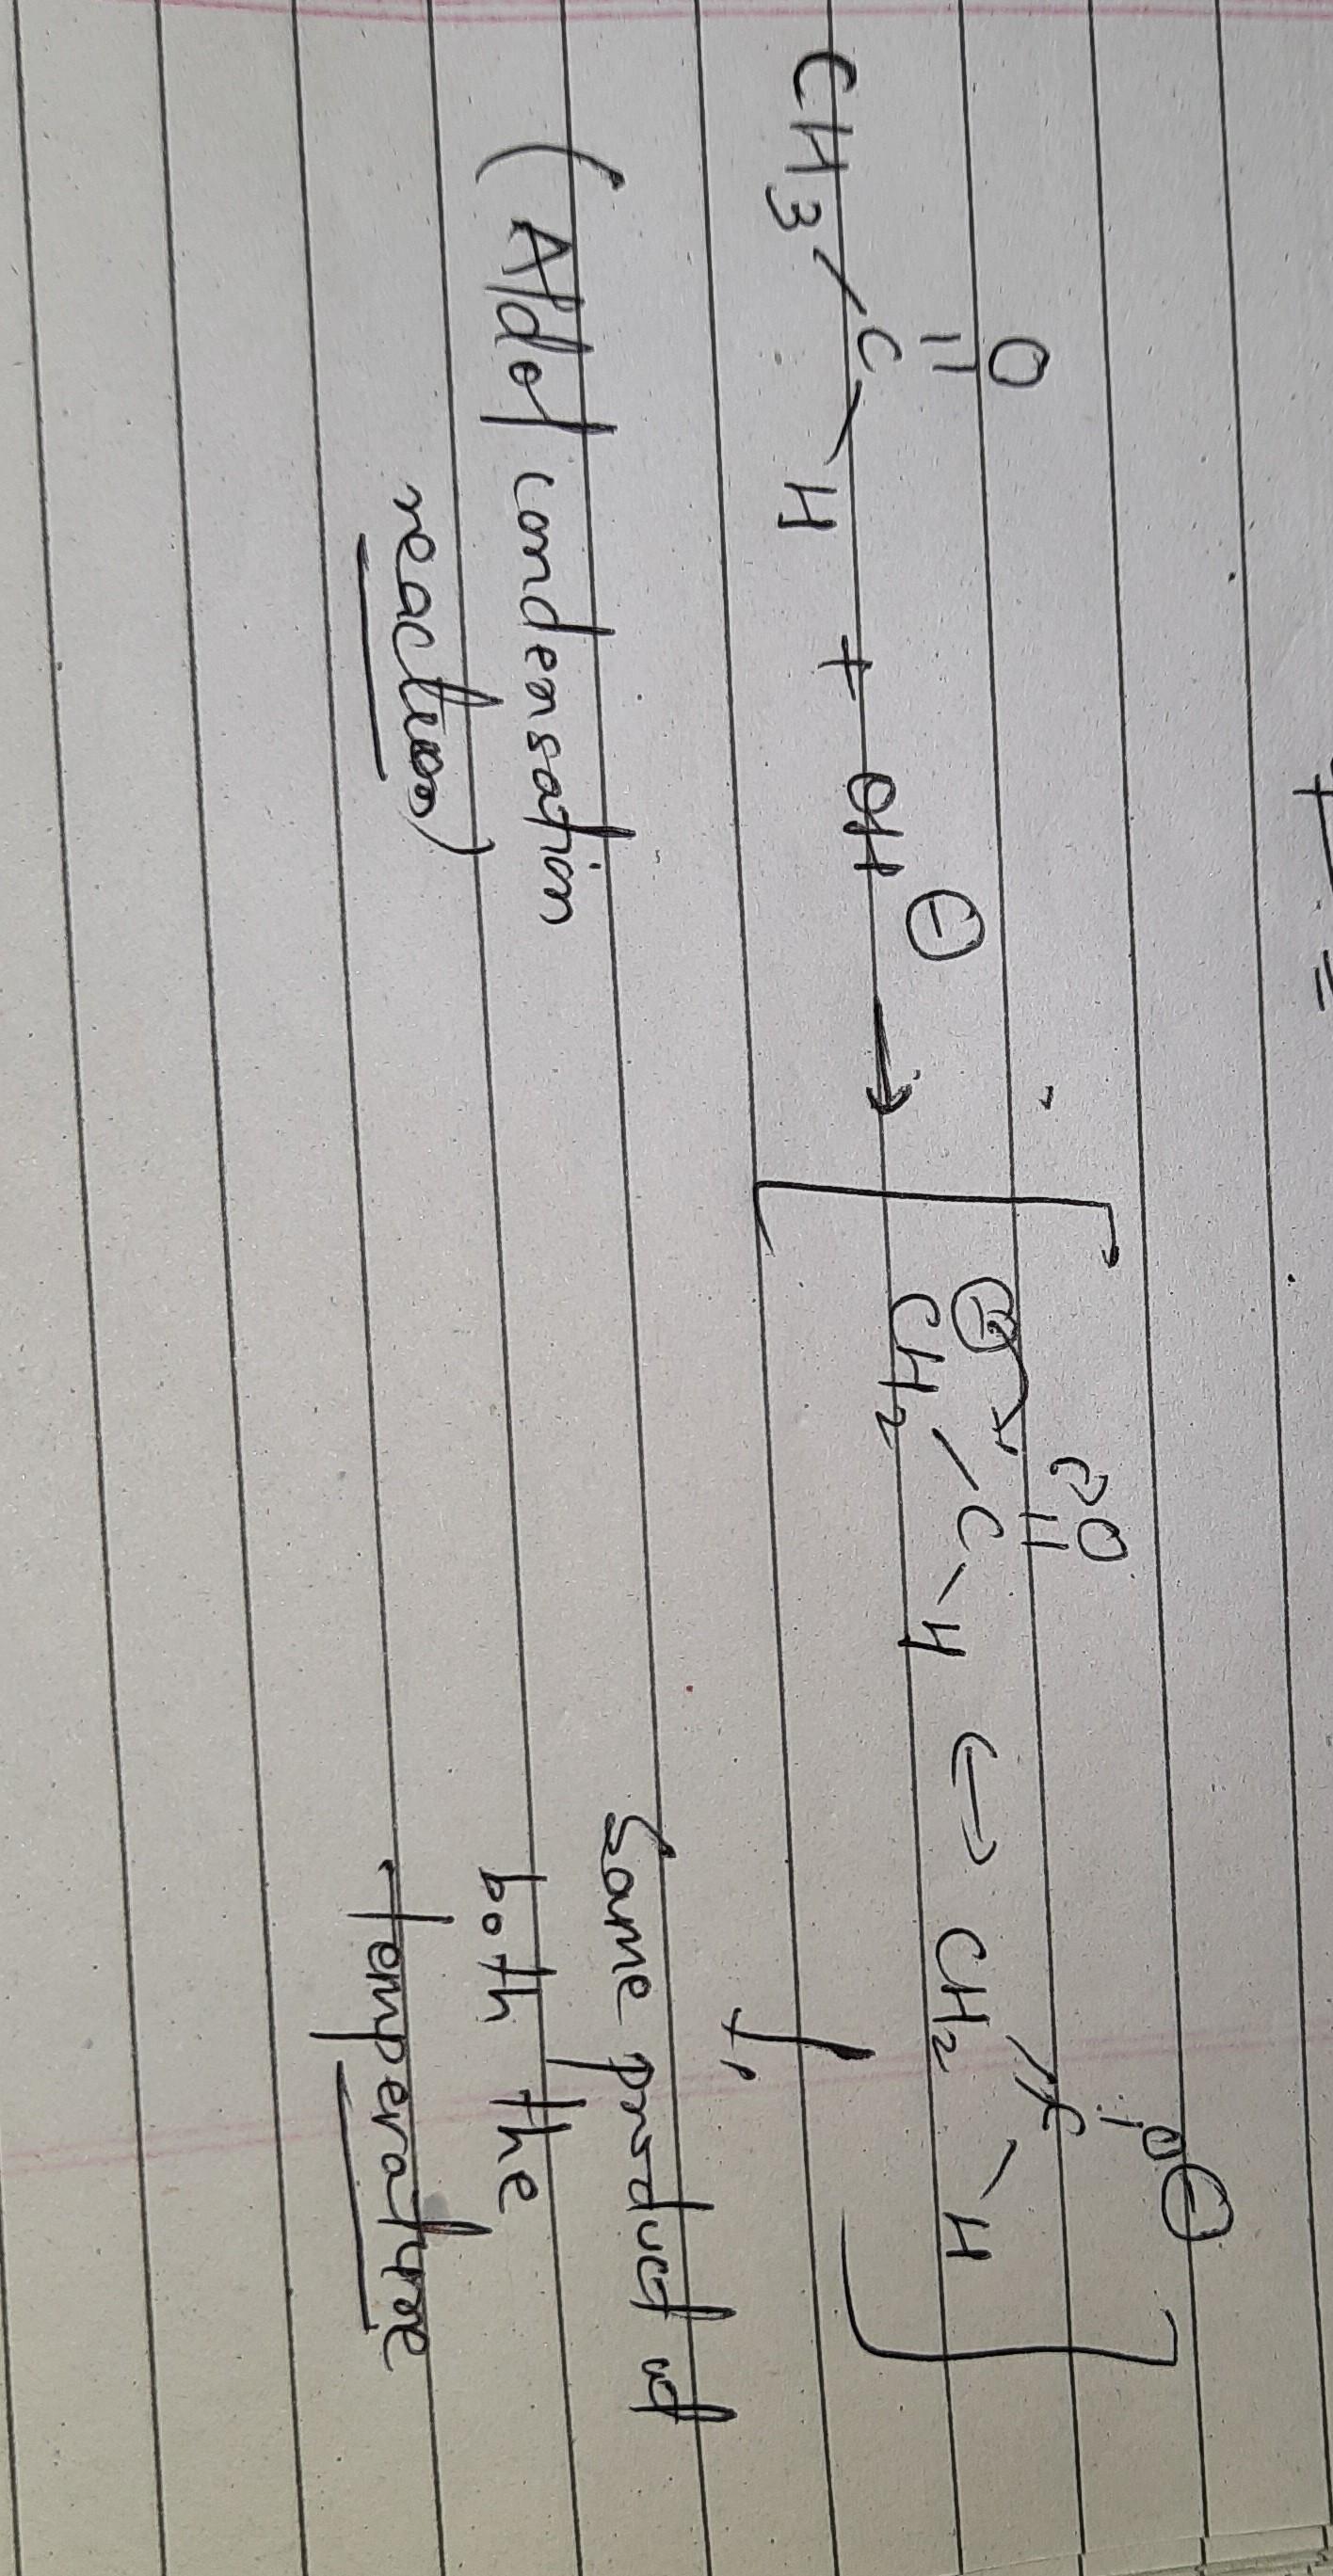 O O O⊖
|| || |
CH3-C-H + OH⊖ → [ ⊖CH2-C-H ↔ CH2=C-H ]
(Aldol condensation
reaction)
Same product at
both the
temperature